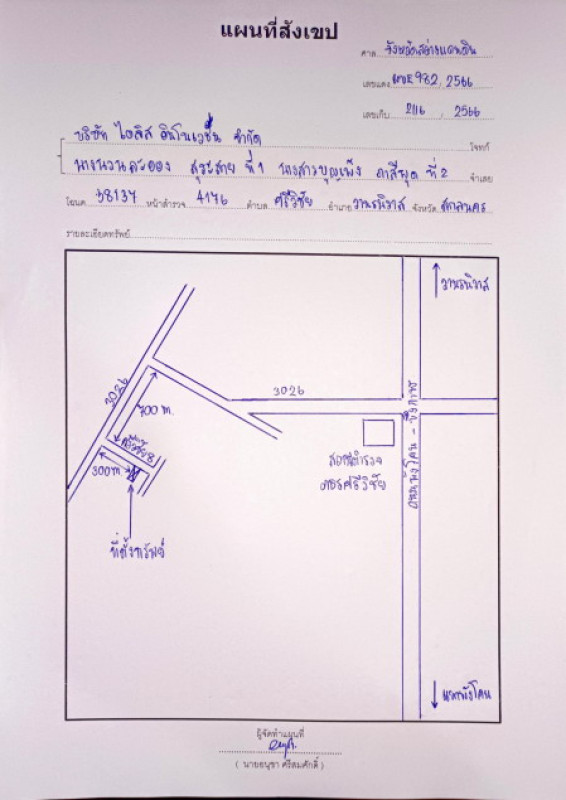 แผนที่สังเขป
ศาล จังหวัดสว่างแดนดิน
เลขแดง ผบE982, 2566
เลขเก็บ 2116, 2566
บริษัท ไฮลิส อินโนเวชั่น จำกัด โจทก์
นางนวนละออง สุระสาย ที่ 1 นางสาวบุญเพ็ง ภาสีผุด ที่ 2 จำเลย
โฉนด 58137 หน้าสำรวจ 4176 ตำบล ศรีวิชัย อำเภอ วานรนิวาส จังหวัด สกลนคร
รายละเอียดทรัพย์
วานรนิวาส
3026
3026
700 m.
ศรีวิชัย 8
300 m.
สถานีตำรวจ
ภธรศรีวิชัย
ถนนพังโคน - บึงกาฬ
ที่ตั้งทรัพย์
แยกพังโคน
ผู้จัดทำแผนที่
( นายอนุชา ศรีสมศักดิ์ )